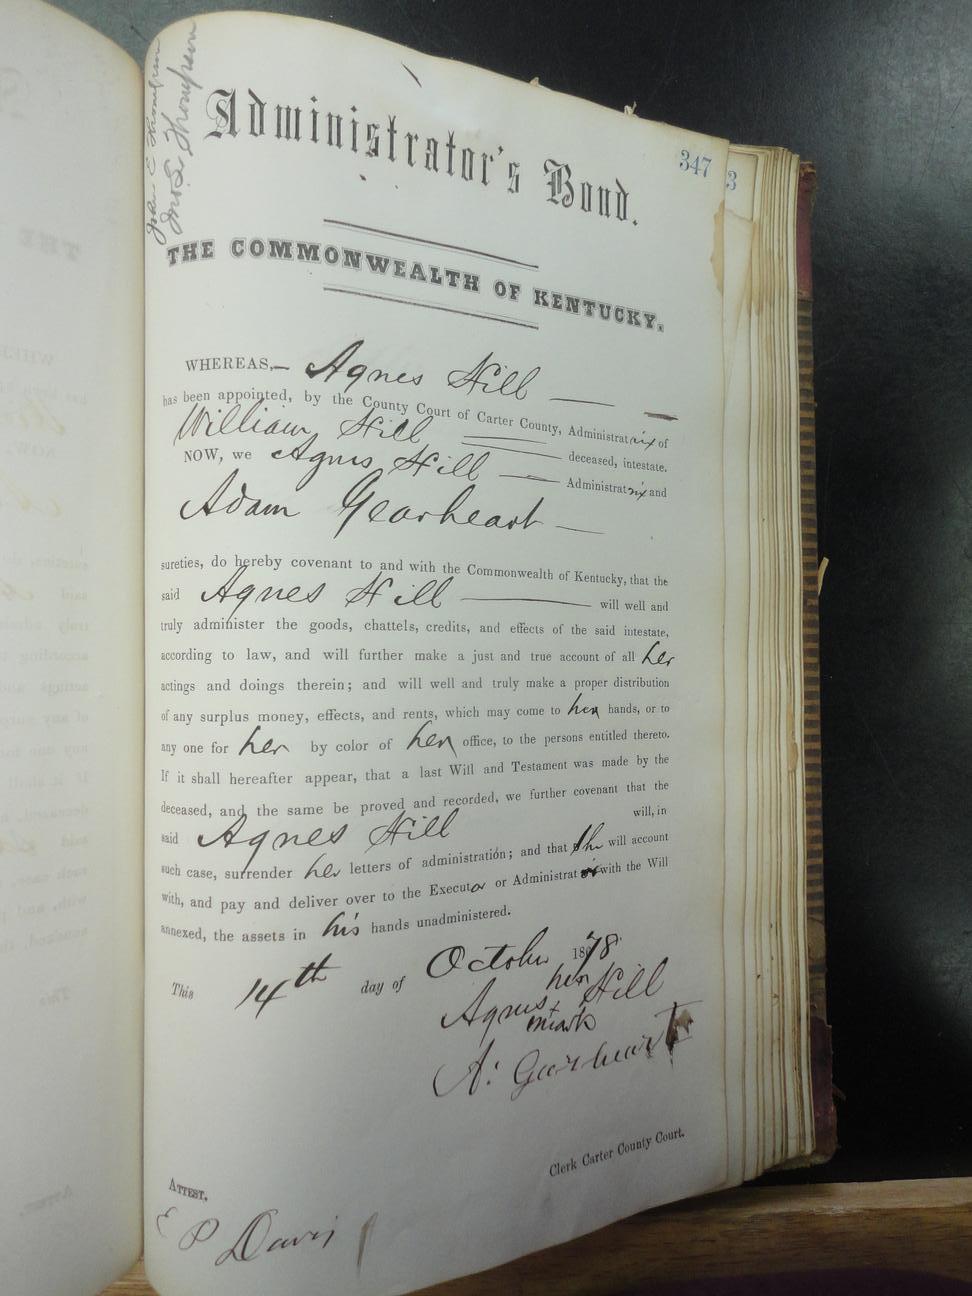 John E Thompson
Jno. E. Thompson
347
3
Administrator's Bond.
THE COMMONWEALTH OF KENTUCKY.
WHEREAS,— Agnes Hill
has been appointed, by the County Court of Carter County, Administratrix of
William Hill deceased, intestate.
NOW, we Agnes Hill Administratrix and
Adam Gearheart
sureties, do hereby covenant to and with the Commonwealth of Kentucky, that the
said Agnes Hill will well and
truly administer the goods, chattels, credits, and effects of the said intestate,
according to law, and will further make a just and true account of all her
actings and doings therein; and will well and truly make a proper distribution
of any surplus money, effects, and rents, which may come to her hands, or to
any one for her by color of her office, to the persons entitled thereto.
If it shall hereafter appear, that a last Will and Testament was made by the
deceased, and the same be proved and recorded, we further covenant that the
said Agnes Hill will, in
such case, surrender her letters of administration; and that she will account
with, and pay and deliver over to the Executor or Administrator with the Will
annexed, the assets in his hands unadministered.
This 14th day of October 1878
her
Agnes x Hill
mark
A. Gearheart
Clerk Carter County Court.
ATTEST,
E P Davis